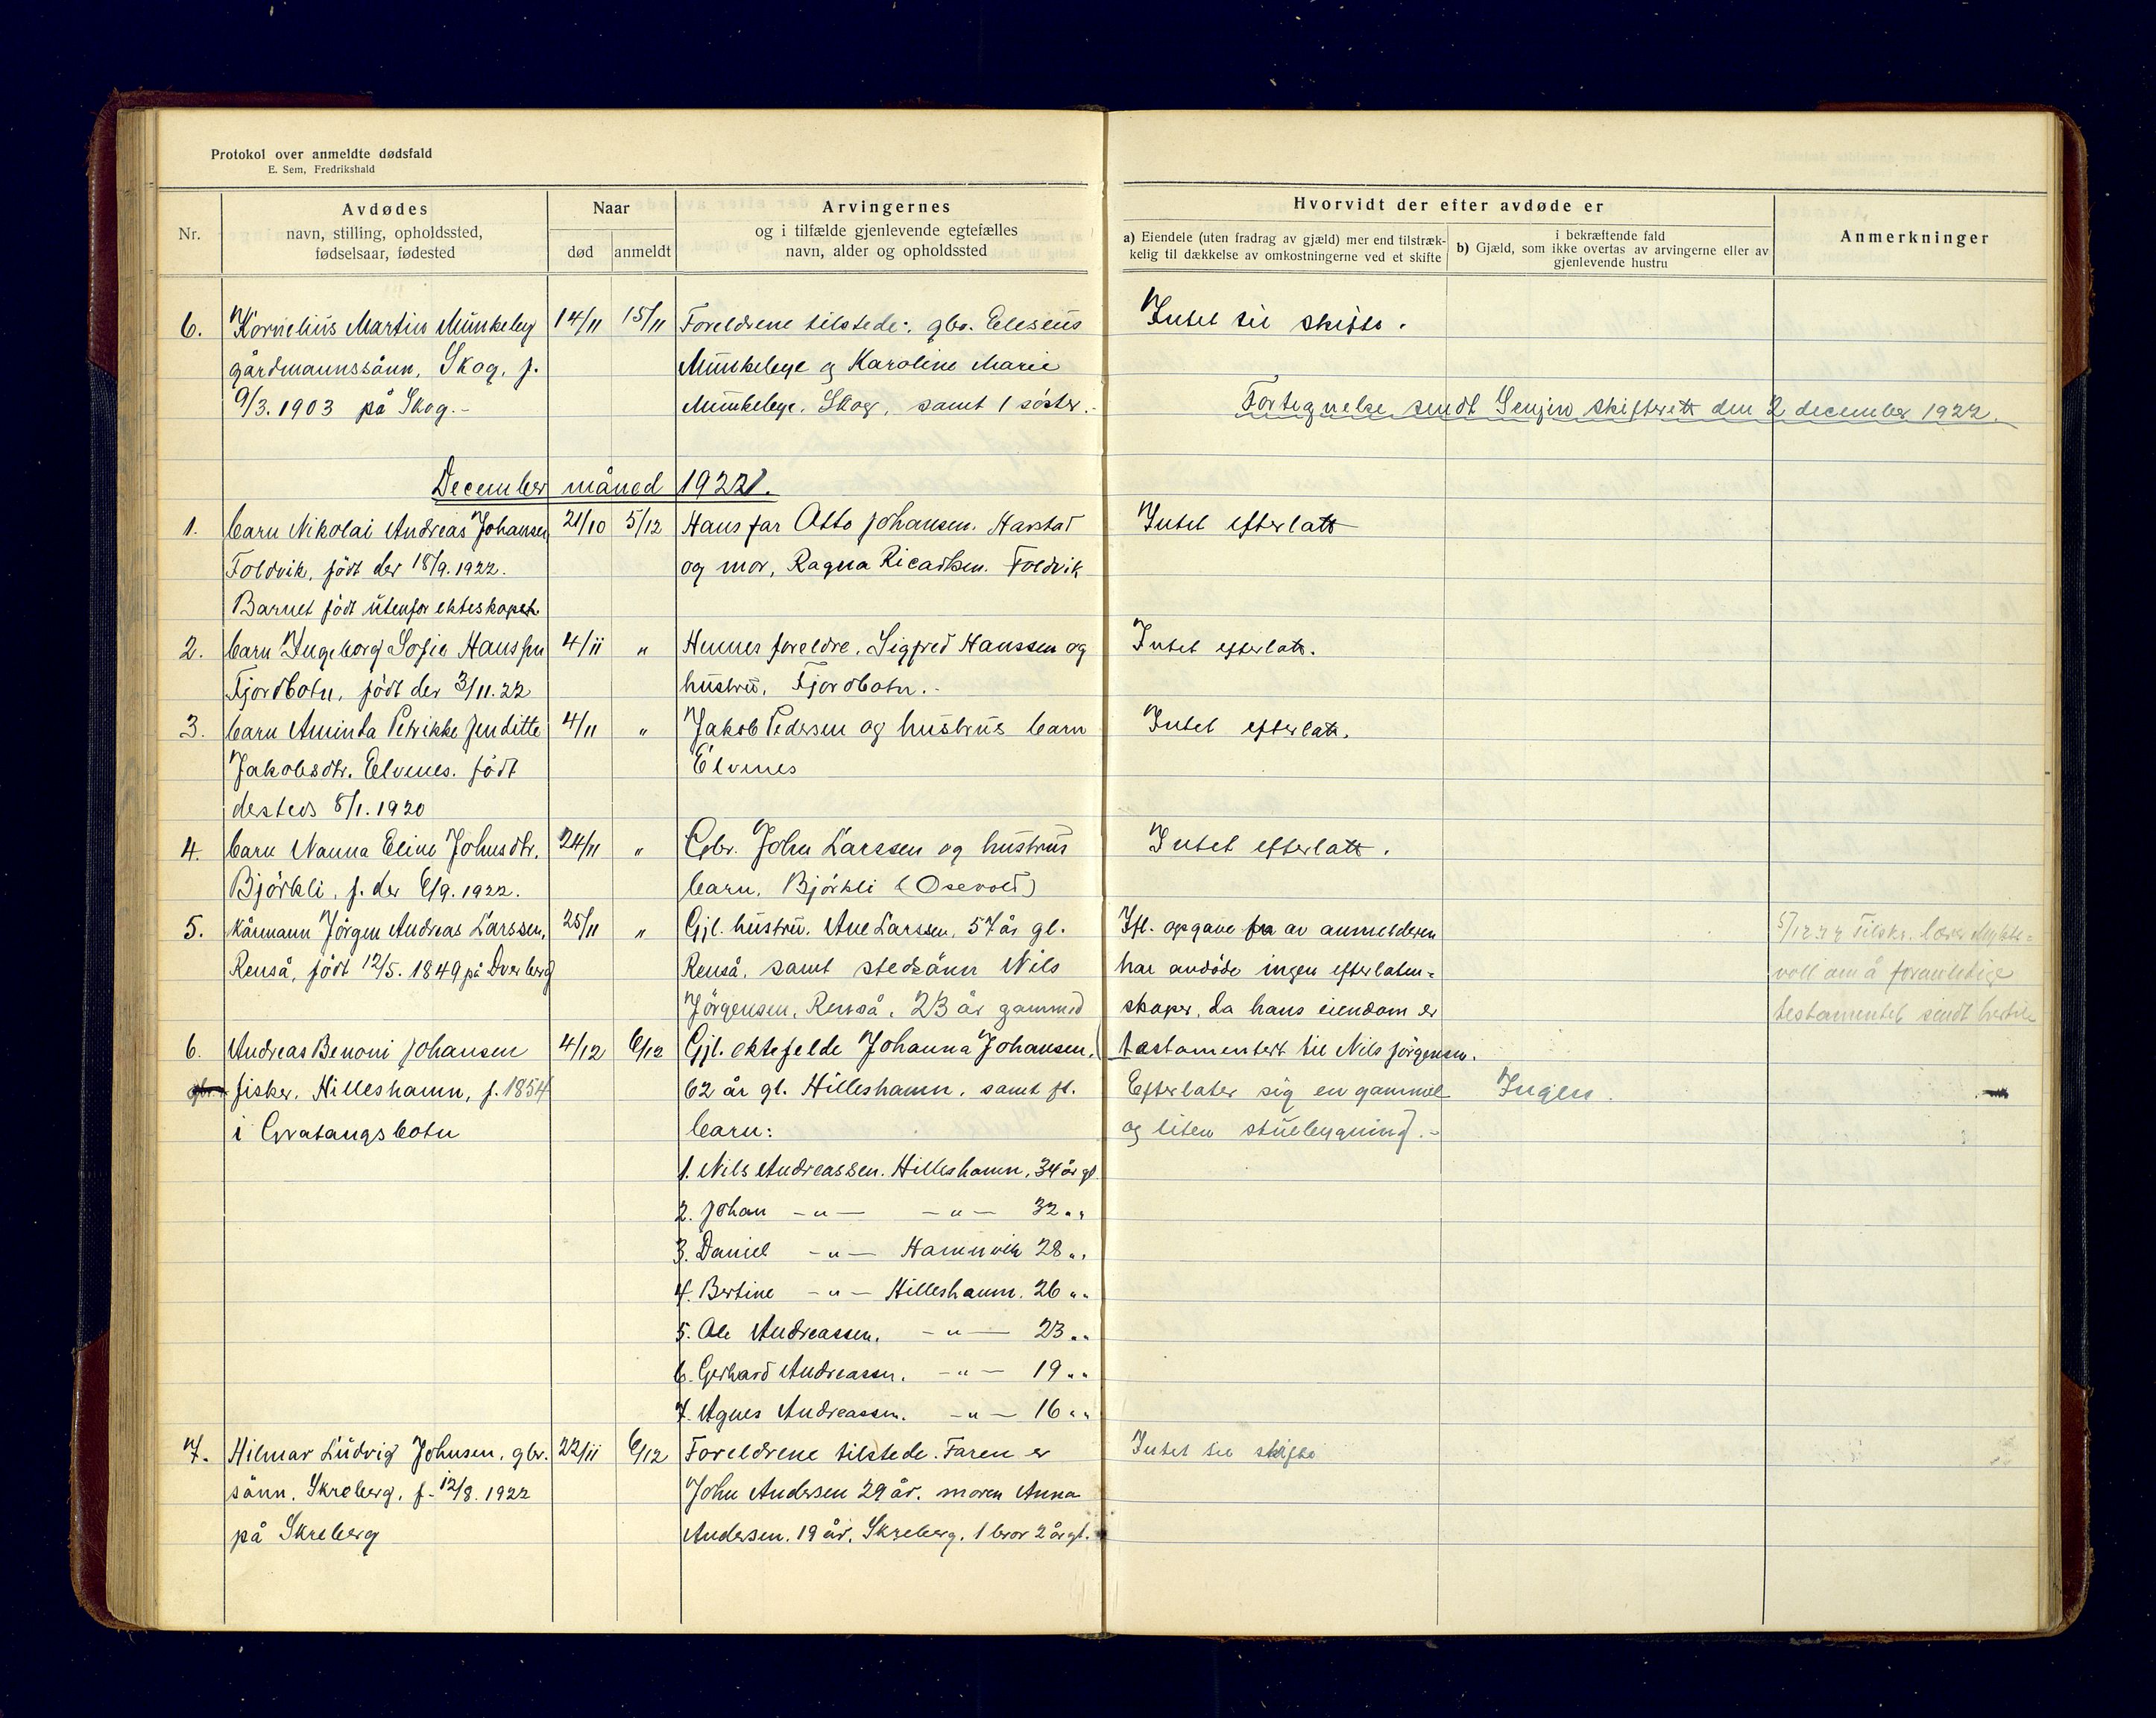 Protokol over anmeldte dødsfald
E. Sem, Fredrikshald
Nr.
Avdødes
navn, stilling, opholdssted,
fødselsaar, fødested
Naar
død
anmeldt
Arvingernes
og i tilfælde gjenlevende egtefælles
navn, alder og opholdssted
Hvorvidt der efter avdøde er
a) Eiendele (uten fradrag av gjæld) mer end tilstræk-
kelig til dækkelse av omkostningerne ved et skifte
i bekræftende fald
b) Gjæld, som ikke overtas av arvingerne eller av
gjenlevende hustru
Anmerkninger
6. Kornelius Martin Munkeby 14/11 15/11 Foreldrene tilstede: gbr. Eliseus Intet til skifte.
gårdmannssönn, Skog, f. Munkebye og Karoline Marie
9/3.1903 på Skog.- Munkebye, Skog, samt 1 söster.-
Fortegnelse sendt Senjen skifterett den 2 december 1922.
December måned 1922.
1. barn Nikolai Andreas Johansen 21/10 5/12 Hans far Otto Johansen. Harstad Intet efterlatt
Foldvik, födt der 18/9.1922. og mor, Ragna Ricardsen. Foldvik
Barnet födt utenfor ekteskapet.
2. barn Ingeborg Sofie Hanssen 4/11 " Hennes foreldre, Sigfred Hanssen og Intet efterlatt.
Fjordbotn, födt der 3/11.22 hustru, Fjordbotn.-
3. barn Aminda Petrikke Jenditte 4/11 " Jakob Pedersen og hustrus barn Intet efterlatt.
Jakobsdtr. Elvenes. födt Elvenes
desteds 8/1.1920
4. barn Nanna Eline Johnsdtr. 24/11 " Gbr. John Larssen og hustrus Intet efterlatt.
Björkli, f. der 6/9.1922. barn, Björkli (Osevold)
5. kårmann Jörgen Andreas Larssen, 25/11 " Gjl. hustru, Ane Larssen, 57 år gl. Ifl. opgave fra av anmelderen
Renså, födt 12/5.1849 på Dverberg Renså, samt stedsönn Nils har avdöde ingen efterlaten=
Jörgensen, Renså, 23 år gammel skaper, da hans eiendom er
testamentert til Nils Jörgensen.
voll om å foranledige
testamentet sendt hertil
6. Andreas Benoni Johansen 4/12 6/12 Gjl. ektefelde Johanna Johansen,
gbr. fisker, Hilleshamn, f. 1854 62 år gl. Hilleshamn, samt fl. Efterlater sig en gammel Ingen.
i Gratangsbotn barn: og liten stuebygning.-
1. Nils Andreassen. Hilleshamn, 34 år gl.
2. Johan -"- -"- 32 "
3. Daniel -"- Hamnvik 28 "
4. Bertine -"- Hilleshamn. 26 "
5. Ole Andreassen. -"- 23 "
6. Gerhard Andreassen. -"- 19 "
7. Agnes Andreassen. -"- 16 "
7. Hilmar Ludvig Johnsen, gbr. 22/11 6/12 Foreldrene tilstede. Faren er Intet til skifte
sönn, Skreberg, f. 12/8.1922 John Andersen 29 år. moren Anna
på Skreberg Andersen, 19 år, Skreberg, 1 bror 2 år gl.